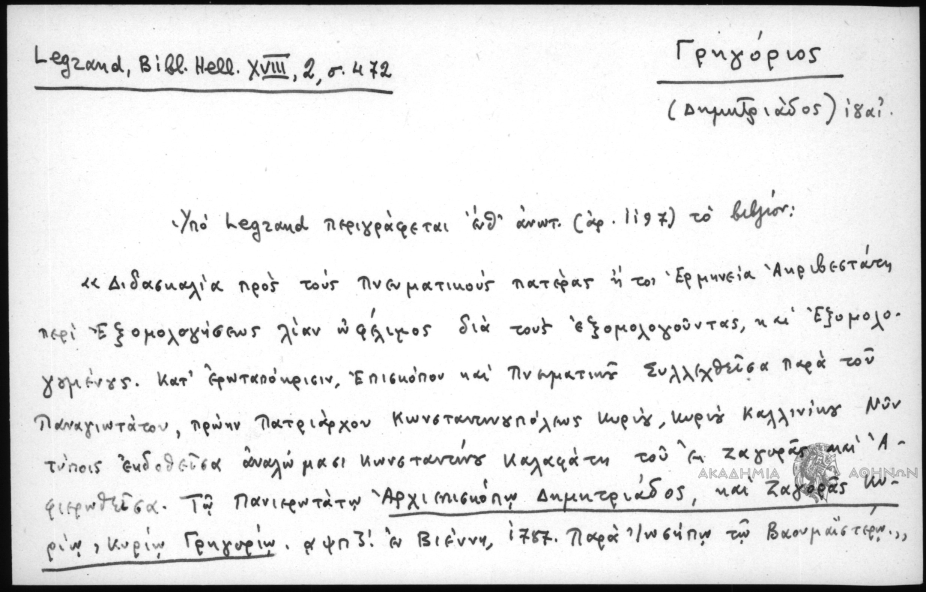 Legrand, Bibl. Hell. XVIII, 2, σ. 472
Γρηγόριος
(Δημητριάδος)
Ὑπό Legrand περιγράφεται ἐνθ' ἀνωτ. (ἀρ. 1197) τὸ βιβλίον:
«Διδασκαλία πρὸς τοὺς Πνευματικοὺς πατέρας ἤ τοι Ἑρμηνεία Ἀκριβεστάτη
περὶ Ἐξομολογήσεως λίαν ὠφέλιμος διὰ τοὺς ἐξομολογοῦντας, καὶ Ἐξομολο-
γουμένους. Κατ' ἐρωταπόκρισιν, Ἐπισκόπου καὶ Πνευματικοῦ Συλλεχθεῖσα παρὰ τοῦ
Παναγιωτάτου, πρώην Πατριάρχου Κωνσταντινουπόλεως Κυρίου, Κυρίου Καλλινίκου Νῦν
τύποις ἐκδοθεῖσα ἀναλώμασι Κωνσταντίνου Καλαφάτη τοῦ ἐκ Ζαγορᾶς καὶ Ἀ-
φιερωθεῖσα. Τῷ Πανιερωτάτῳ Ἀρχιεπισκόπῳ Δημητριάδος, καὶ Ζαγορᾶς Κυ-
ρίῳ, Κυρίῳ Γρηγορίῳ. αψπζ! ἐν Βιέννῃ, 1787. Παρὰ Ἰωσήπῳ τῷ Βαουμαϊστέρῳ.,,
ΑΚΑΔΗΜΙΑ ΑΘΗΝΩΝ